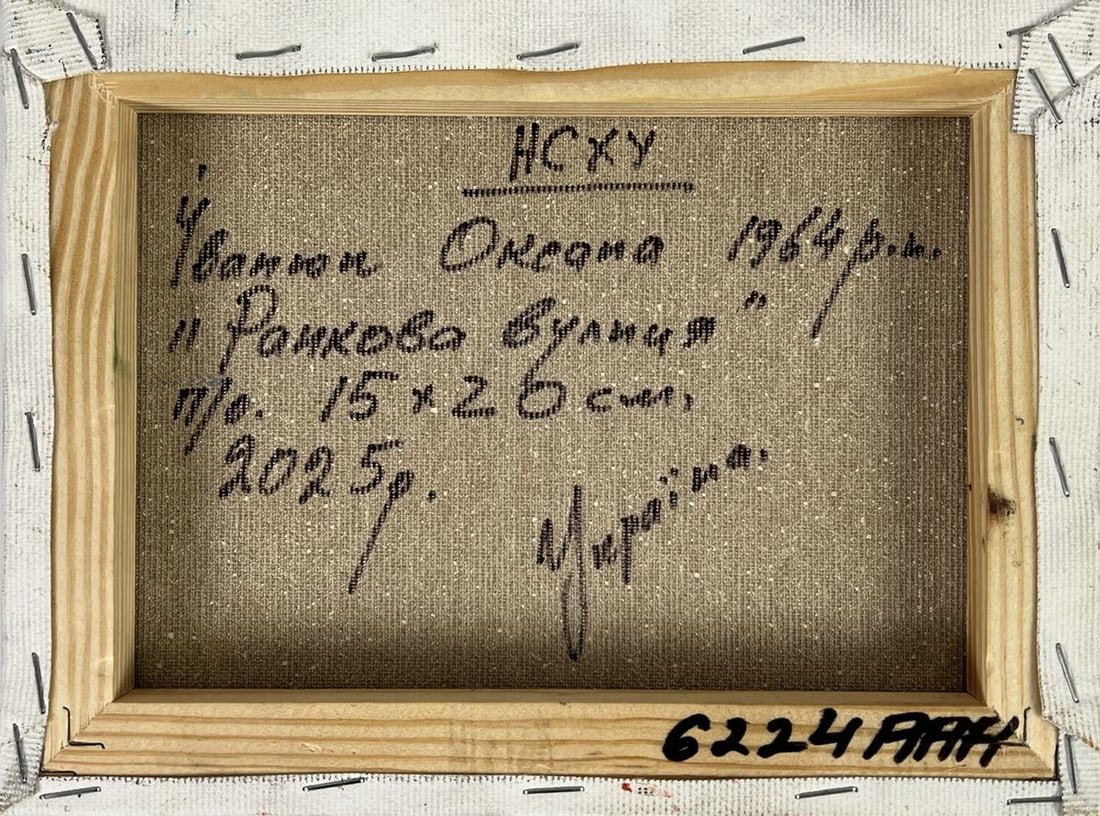 НСХУ
Іванюк Оксана 1964 р.н.
"Ранкова вулиця"
п/о. 15 x 20 см,
2025р.
Україна.
6224 ААН